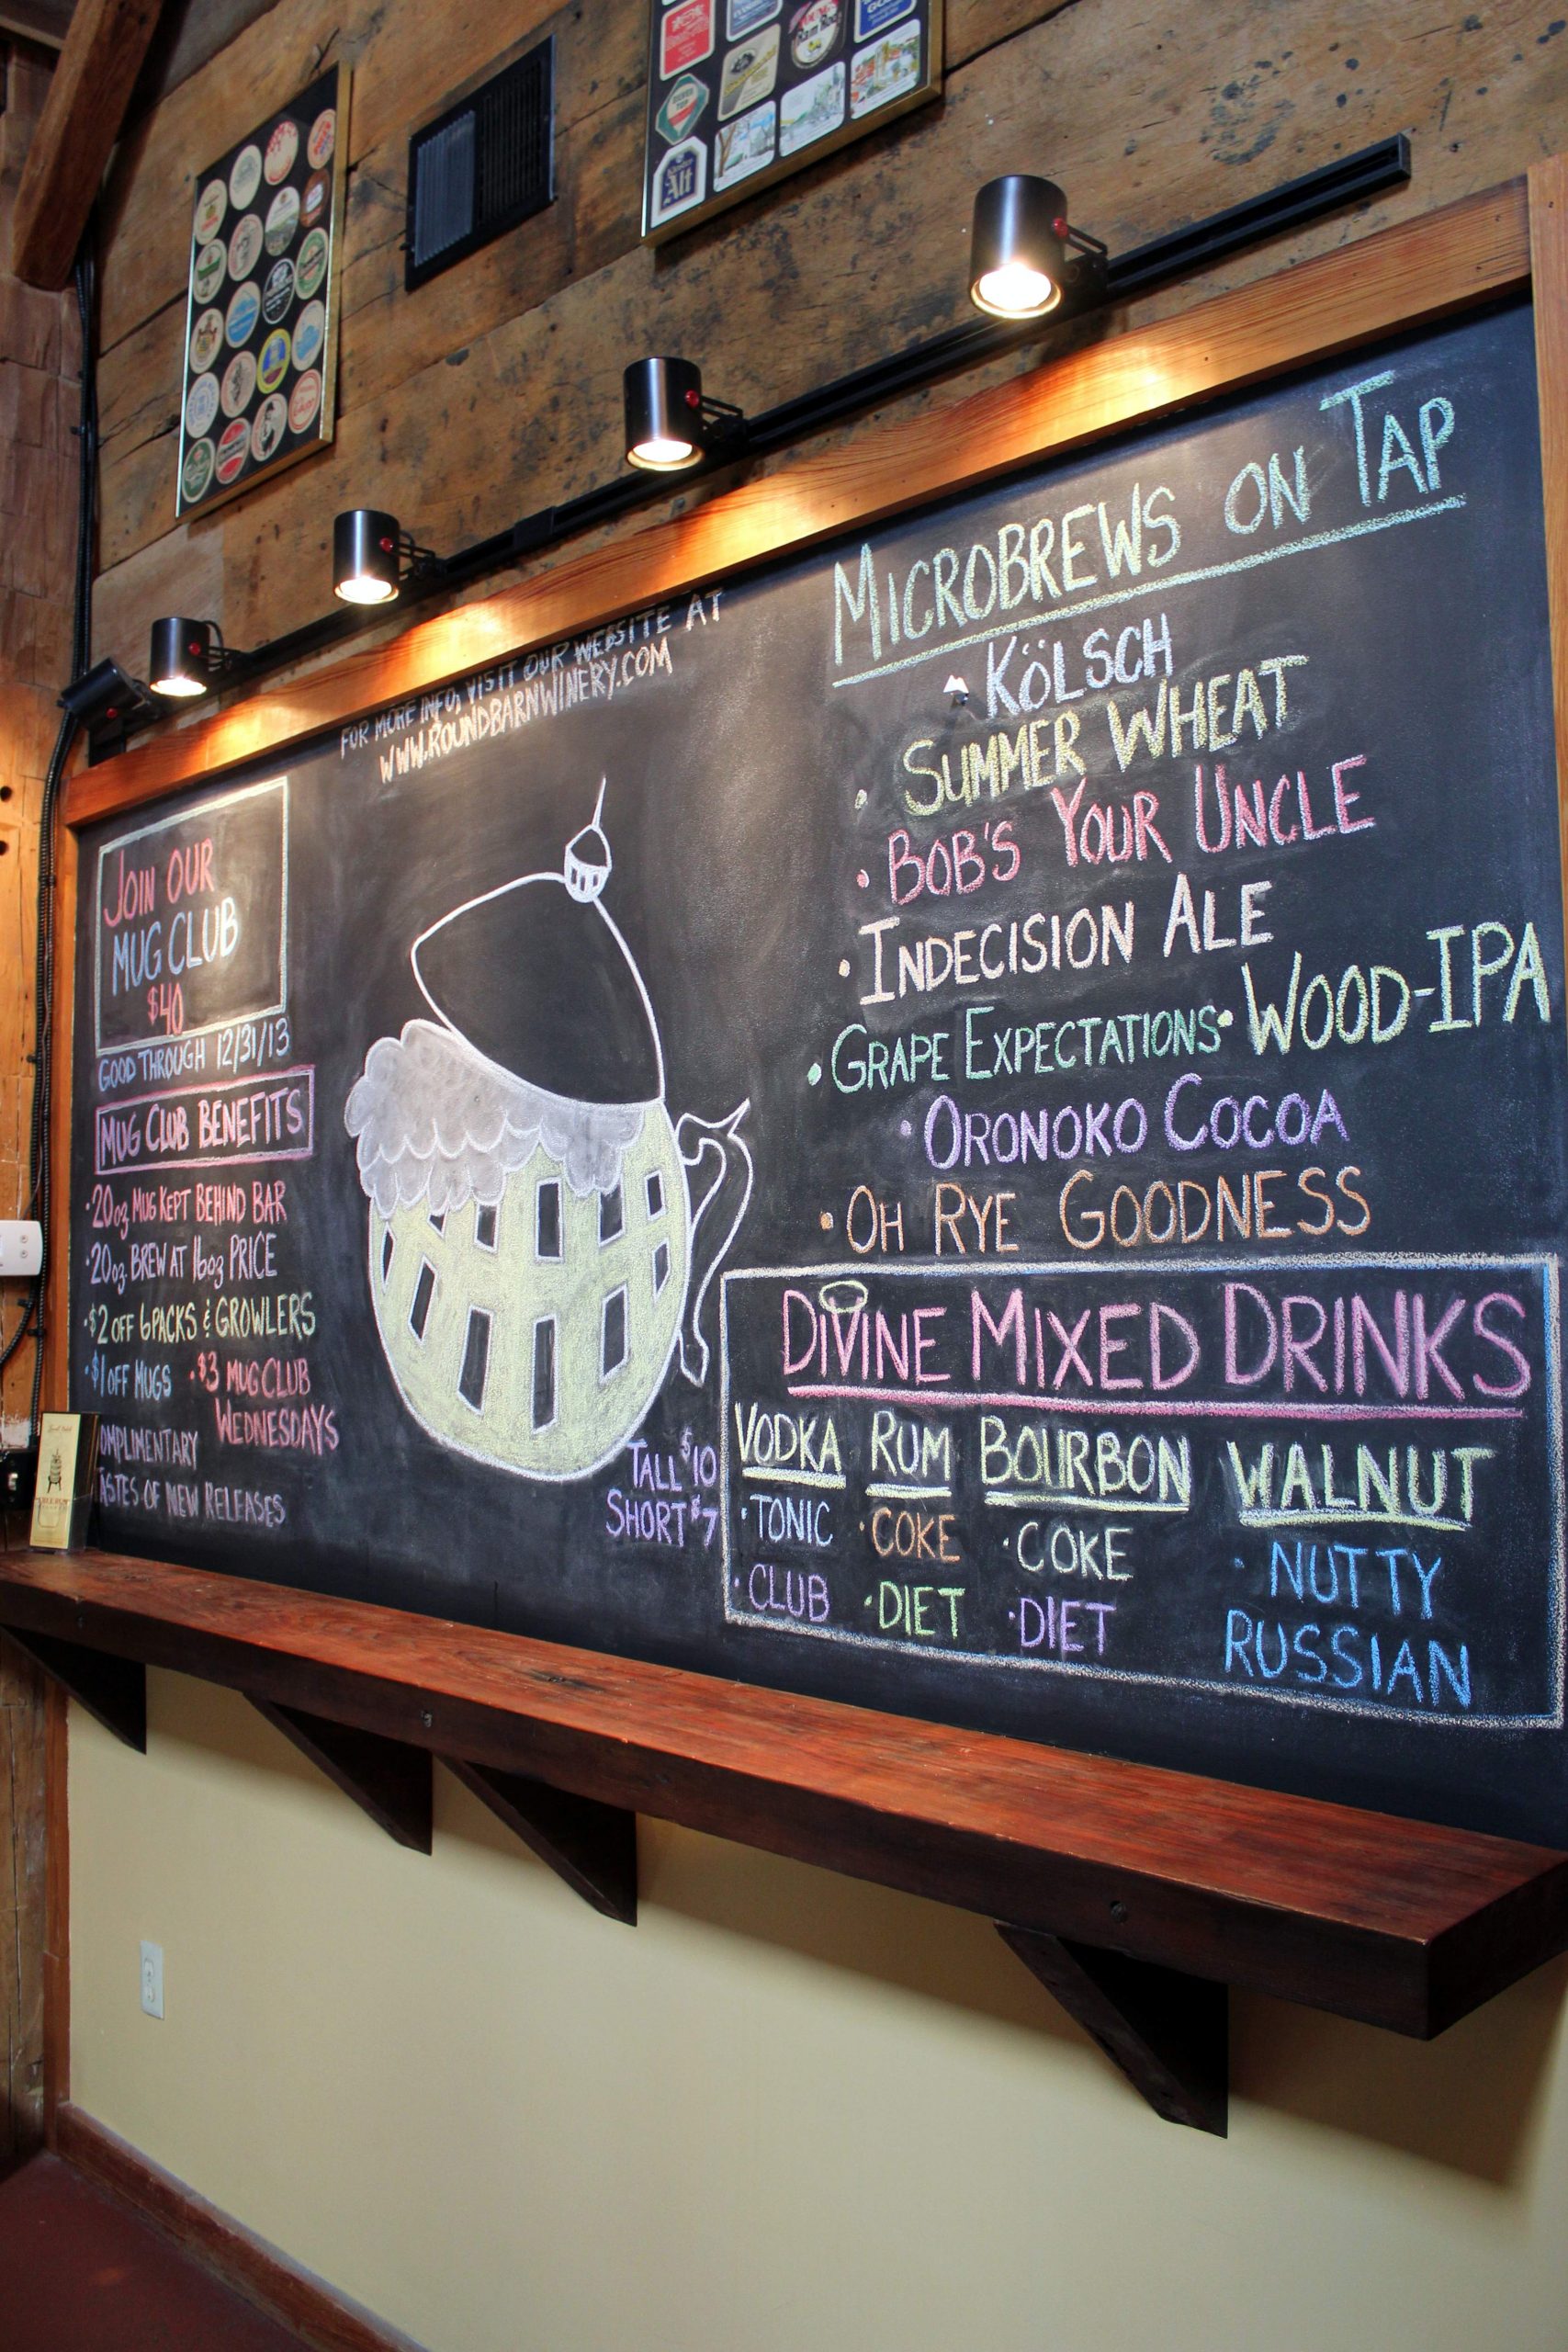 Alt
FOR MORE INFO, VISIT OUR WEBSITE AT
WWW.ROUNDBARNWINERY.COM
JOIN OUR
MUG CLUB
$40
GOOD THROUGH 12/31/13
MUG CLUB BENEFITS
·20oz MUG KEPT BEHIND BAR
·20oz BREW AT 16oz PRICE
·$2 OFF 6PACKS & GROWLERS
·$1 OFF MUGS ·$3 MUG CLUB
WEDNESDAYS
OMPLIMENTARY
ASTES OF NEW RELEASES
MICROBREWS ON TAP
KÖLSCH
· SUMMER WHEAT
· BOB'S YOUR UNCLE
· INDECISION ALE
· GRAPE EXPECTATIONS · WOOD-IPA
· ORONOKO COCOA
· OH RYE GOODNESS
TALL $10
SHORT $7
DIVINE MIXED DRINKS
VODKA RUM BOURBON WALNUT
· TONIC · COKE · COKE · NUTTY
· CLUB · DIET · DIET RUSSIAN